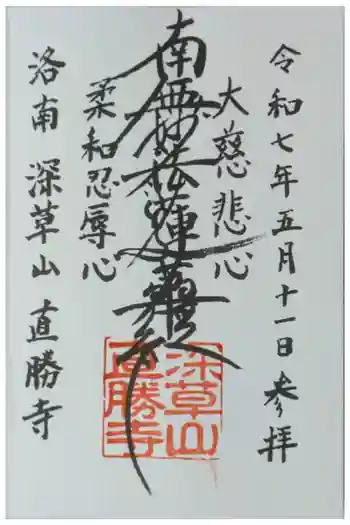 令和七年五月十一日参拝
大慈悲心
南無妙法蓮華経
柔和忍辱心
洛南 深草山 直勝寺
深草山
直勝寺